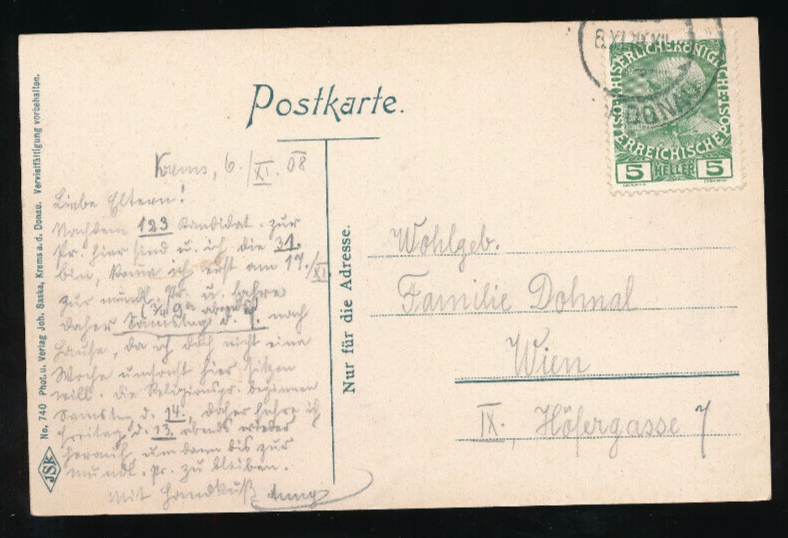 Postkarte.
No. 740 Phot. u. Verlag Joh. Saska, Krems a. d. Donau. Vervielfältigung vorbehalten.
JSK
Nur für die Adresse.
6 XI
DONAU
KAISERLICHE KÖNIGLICHE ÖSTERREICHISCHE POST
5 HELLER 5
Krems, 6./XI. 08
Liebe Eltern!
Nachdem 123 Kandidat. zur
Pr. hier sind u. ich die 31.
bin, komm ich erst am 17./XI.
zur mündl. Pr. u. fahre
(3/4 9h abends)
daher Samstag d. 7. nach
Hause, da ich doch nicht eine
Woche umsonst hier sitzen
will. Die Religionspr. beginnen
Samstag d. 14., daher fahre ich
Freitag d. 13. abends wieder
herauf, um dann bis zur
mündl. Pr. zu bleiben.
Mit Handkuß
Wohlgeb.
Familie Dohnal
Wien
IX., Höfergasse 7